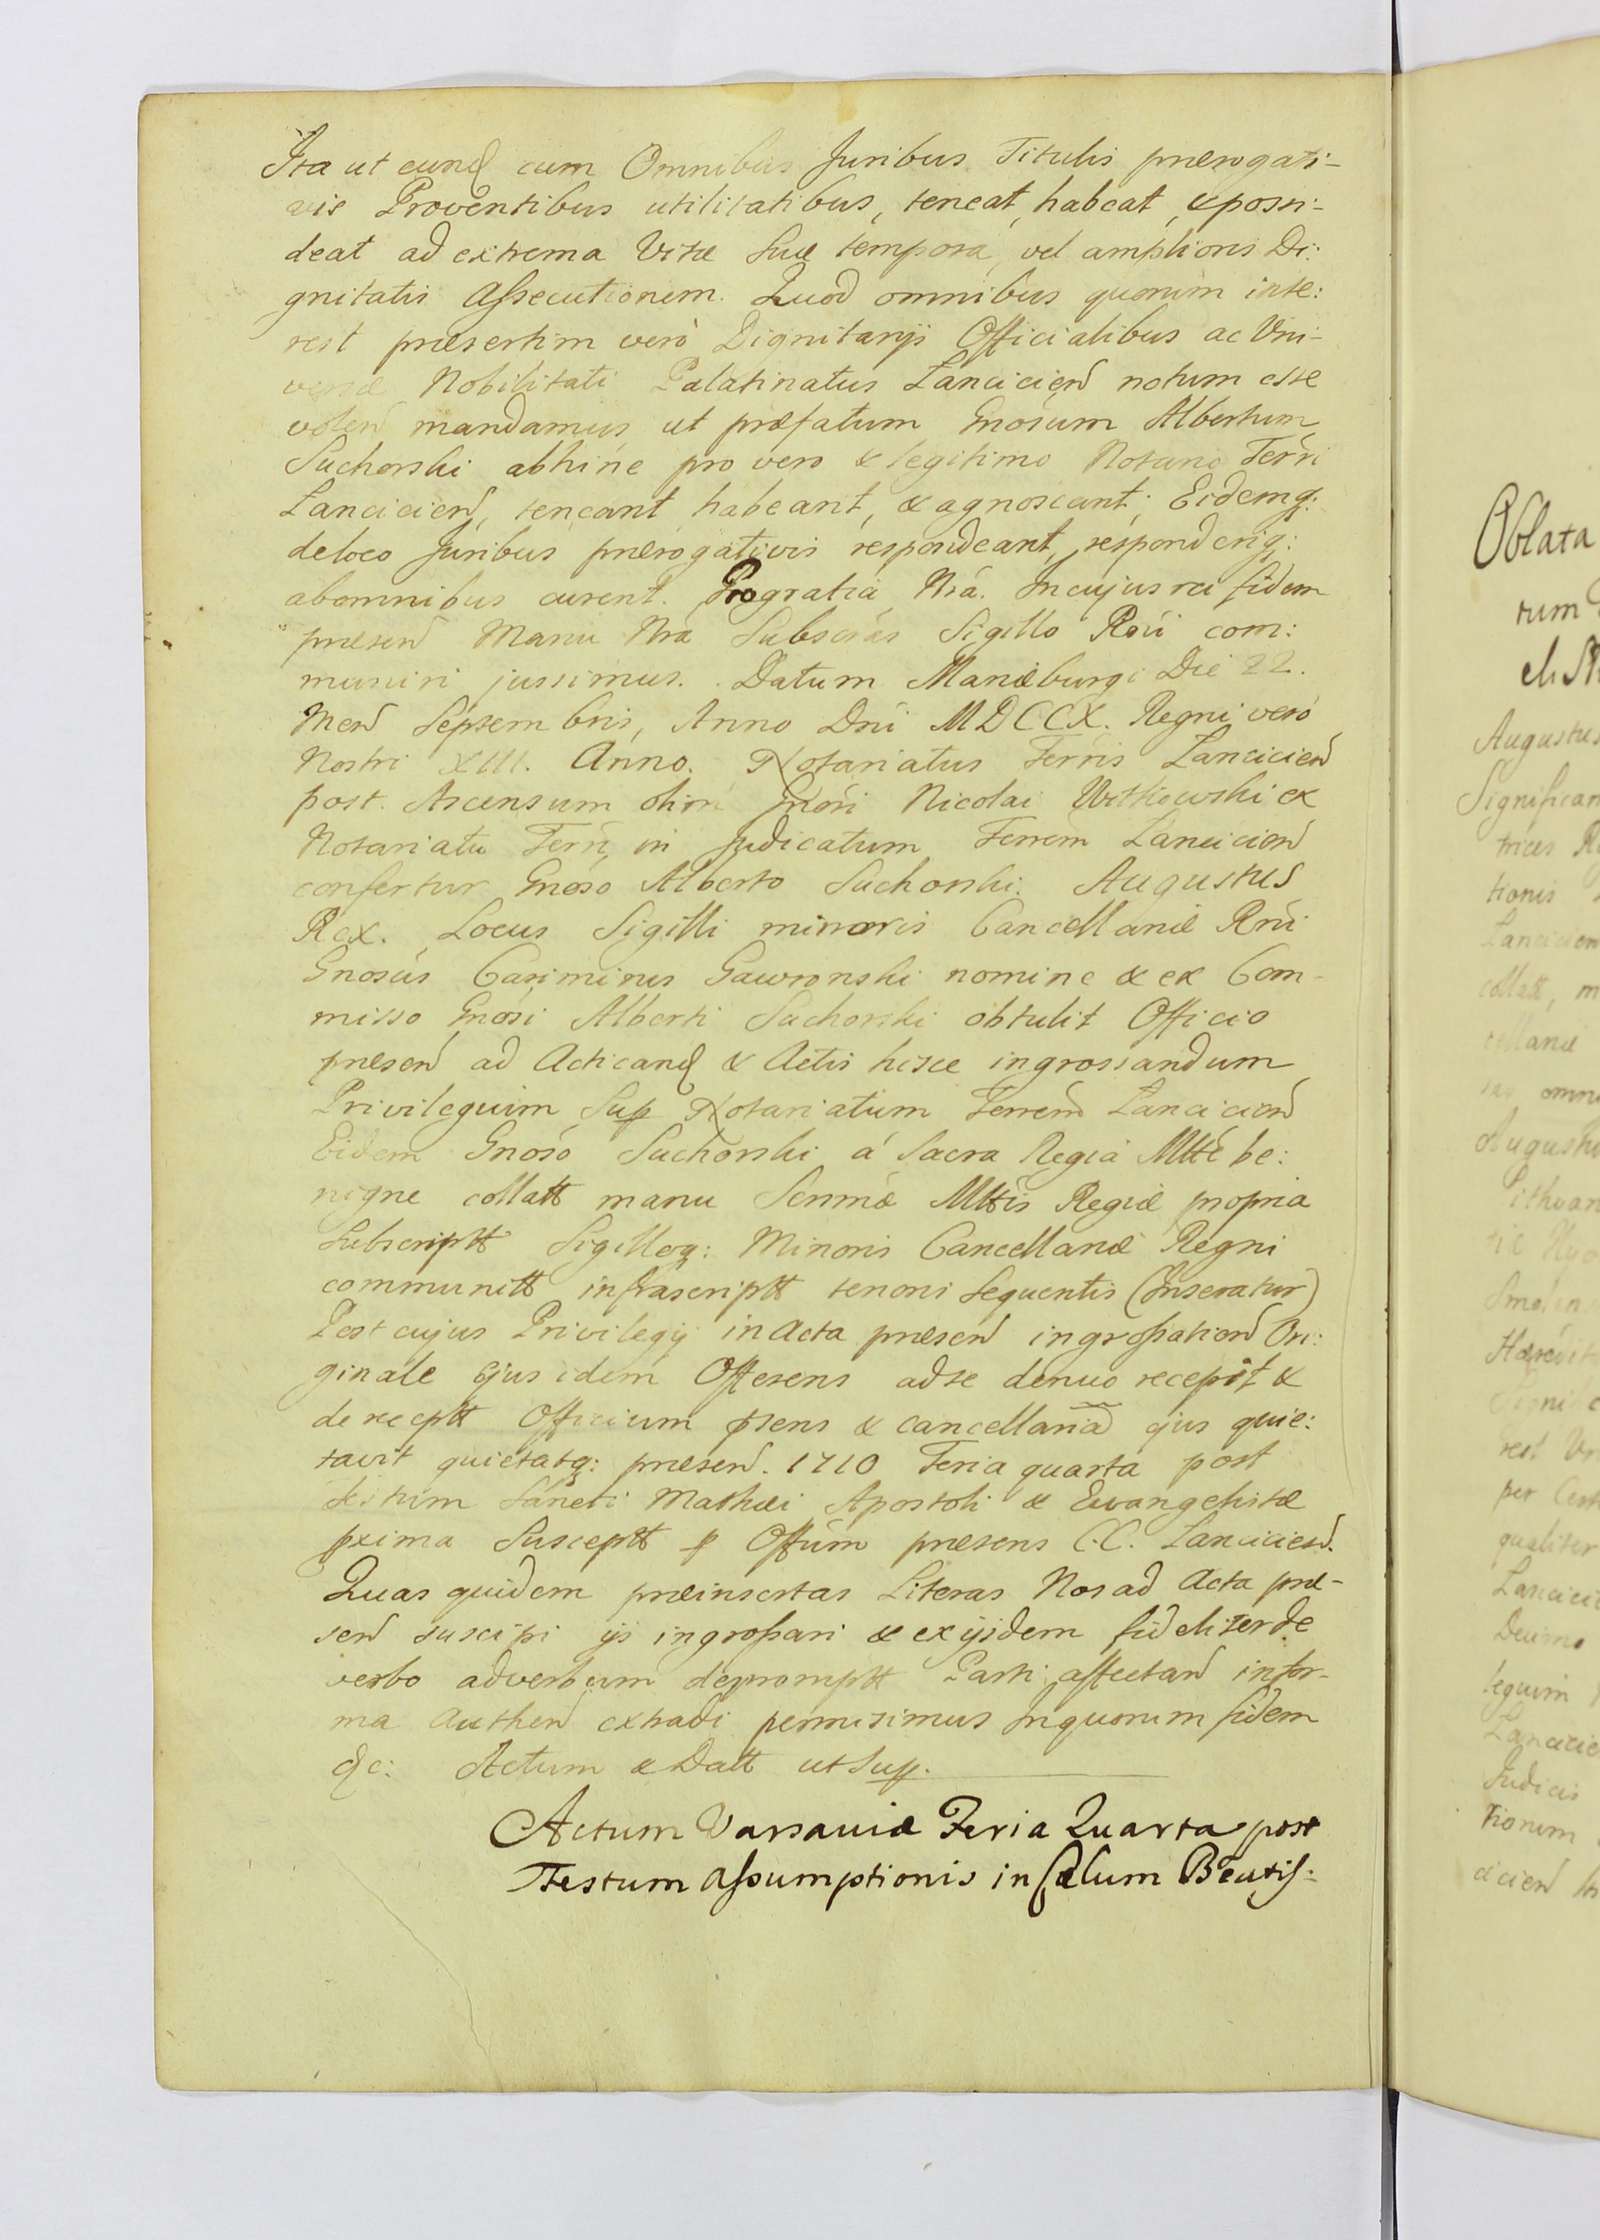 Ita ut eund cum Omnibus Juribus Titulis prærogati-
vis Proventibus utilitatibus, teneat, habeat, & possi-
deat ad extrema Vitæ Suæ tempora, vel amplioris Di:
gnitatis Assecutionem. Quod omnibus quorum inte:
rest præsertim verò Dignitarijs Officialibus ac Uni-
versæ Nobilitati Palatinatus Lanciciend notum esse
volend mandamus ut præfatum Gnosum Albertum
Suchorski abhinc pro vero & legitimo Notario Terri
Lanciciend, teneant habeant, & agnoscant, Eidemq:
de loco Juribus prærogativis respondeant, responderiq:
ab omnibus curent. Pro gratia Nrâ. In cujus rei fidem
præsend Manu Nrâ Subscras Sigillo Rgni com:
muniri jussimus. Datum Mariæburgi Die 22.
Mend Septembris, Anno Dni MDCCX. Regni verò
Nostri XIII. Anno. Notariatus Terris Lanciciend
post Ascensum olim Gnosi Nicolai Witkowski ex
Notariatu Terri, in Judicatum Terrem Lanciciend
confertur Gnoso Alberto Suchorski. Augustus
Rex. Locus Sigilli minoris Cancellariæ Rni
Gnosus Casimirus Gawronski nomine & ex Com-
misso Gnosi Alberti Suchorski obtulit Officio
præsend ad Acticand & Actis hisce ingrossandum
Privilegium Sup Notariatum Terrend Lanciciend
Eidem Gnoso Suchorski á Sacra Regia Mtte be:
nigne collatt manu Senmæ Mttis Regiæ propria
Subscriptt Sigilloq: Minoris Cancellariæ Regni
communitt infrascriptt tenoris Sequentis (Inseratur)
Post cujus Privilegij in Acta præsend ingrossationd Ori:
ginale ejus idem Offerens ad se denuo recepit &
de receptt Officium psens & cancellariâ ejus quie:
tavit quietatq: præsend. 1710 Feria quarta post
Festum Sancti Mathæi Apostoli & Evangelistæ
pxima Susceptt p Offum præsens C.C. Lanciciend.
Quas quidem præinsertas Literas Nos ad Acta præ-
send suscipi ijs ingrossari & ex ijsdem fideliter de
verbo ad verbum depromptt Parti affectand in for-
ma Authend extradi permisimus In quorum fidem
&c: Actum & Datt ut Sup.
Actum Varsaviæ Feria Quarta post
Festum Assumptionis in Cælum Beatis:
Oblata
tum
Augustus
Significam
trices
tionis
collatt, m
omni
Augustu
rest.
per
qualiter
Decimo
legium
Judicis
tionum
ciciend